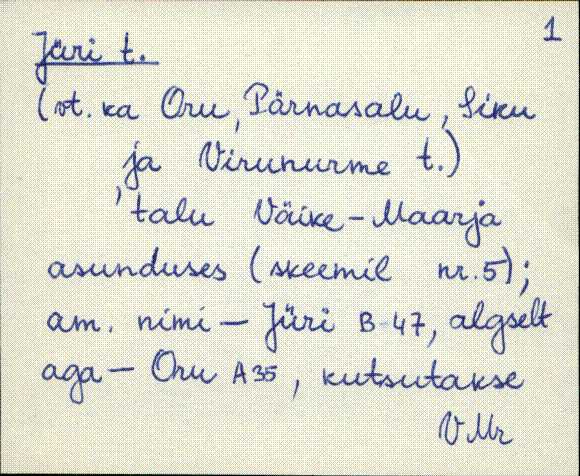 1
Jüri t.
(vt. ka Oru, Pärnasalu, Siku
ja Virunurme t.)
'talu Väike-Maarja
asunduses (skeemil nr. 5);
am. nimi — Jüri B-47, algselt
aga — Oru A35, kutsutakse
VMr